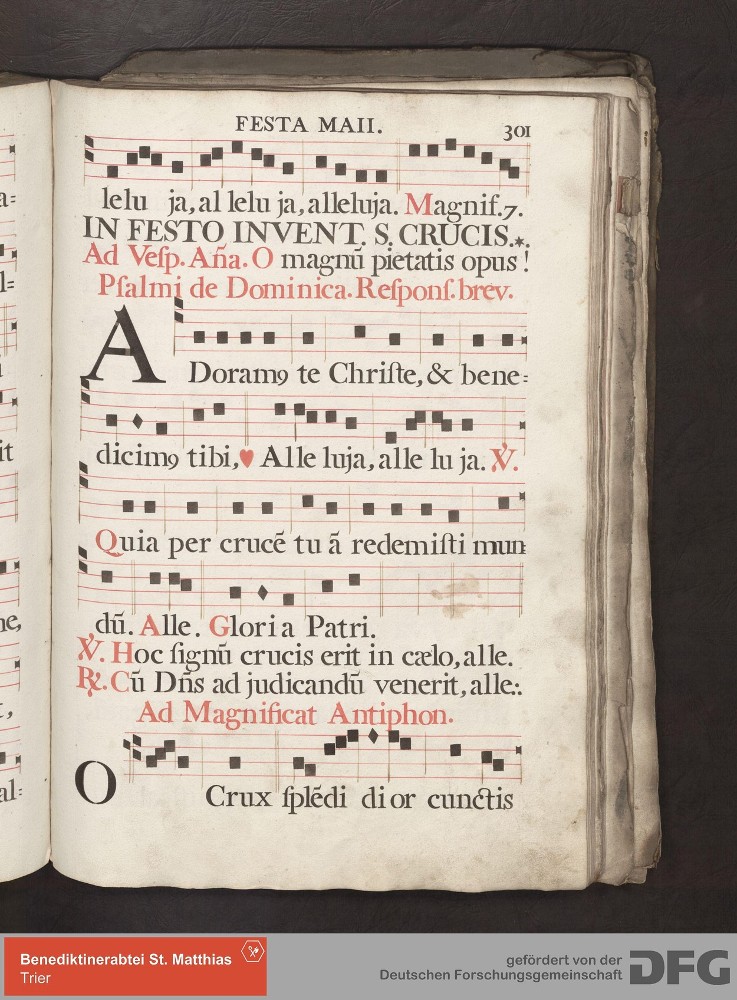 FESTA MAII. 301
lelu ja, al lelu ja, alleluja. Magnif.7.
IN FESTO INVENT. S. CRUCIS.*.
Ad Veſp. Aña. O magnũ pietatis opus!
Pſalmi de Dominica. Reſponſ. brev.
ADoram9 te Chriſte, & bene=
dicim9 tibi, ♥ Alle luja, alle lu ja. ℣.
Quia per crucẽ tu ã redemiſti mun
dũ. Alle. Gloria Patri.
℣. Hoc ſignũ crucis erit in cælo, alle.
℟. Cũ Dñs ad judicandũ venerit, alle:.
Ad Magnificat Antiphon.
O Crux ſplẽdi di or cunctis
a=
l=
it
ne,
t,
al=
Benediktinerabtei St. Matthias
Trier
gefördert von der
Deutschen Forschungsgemeinschaft
DFG